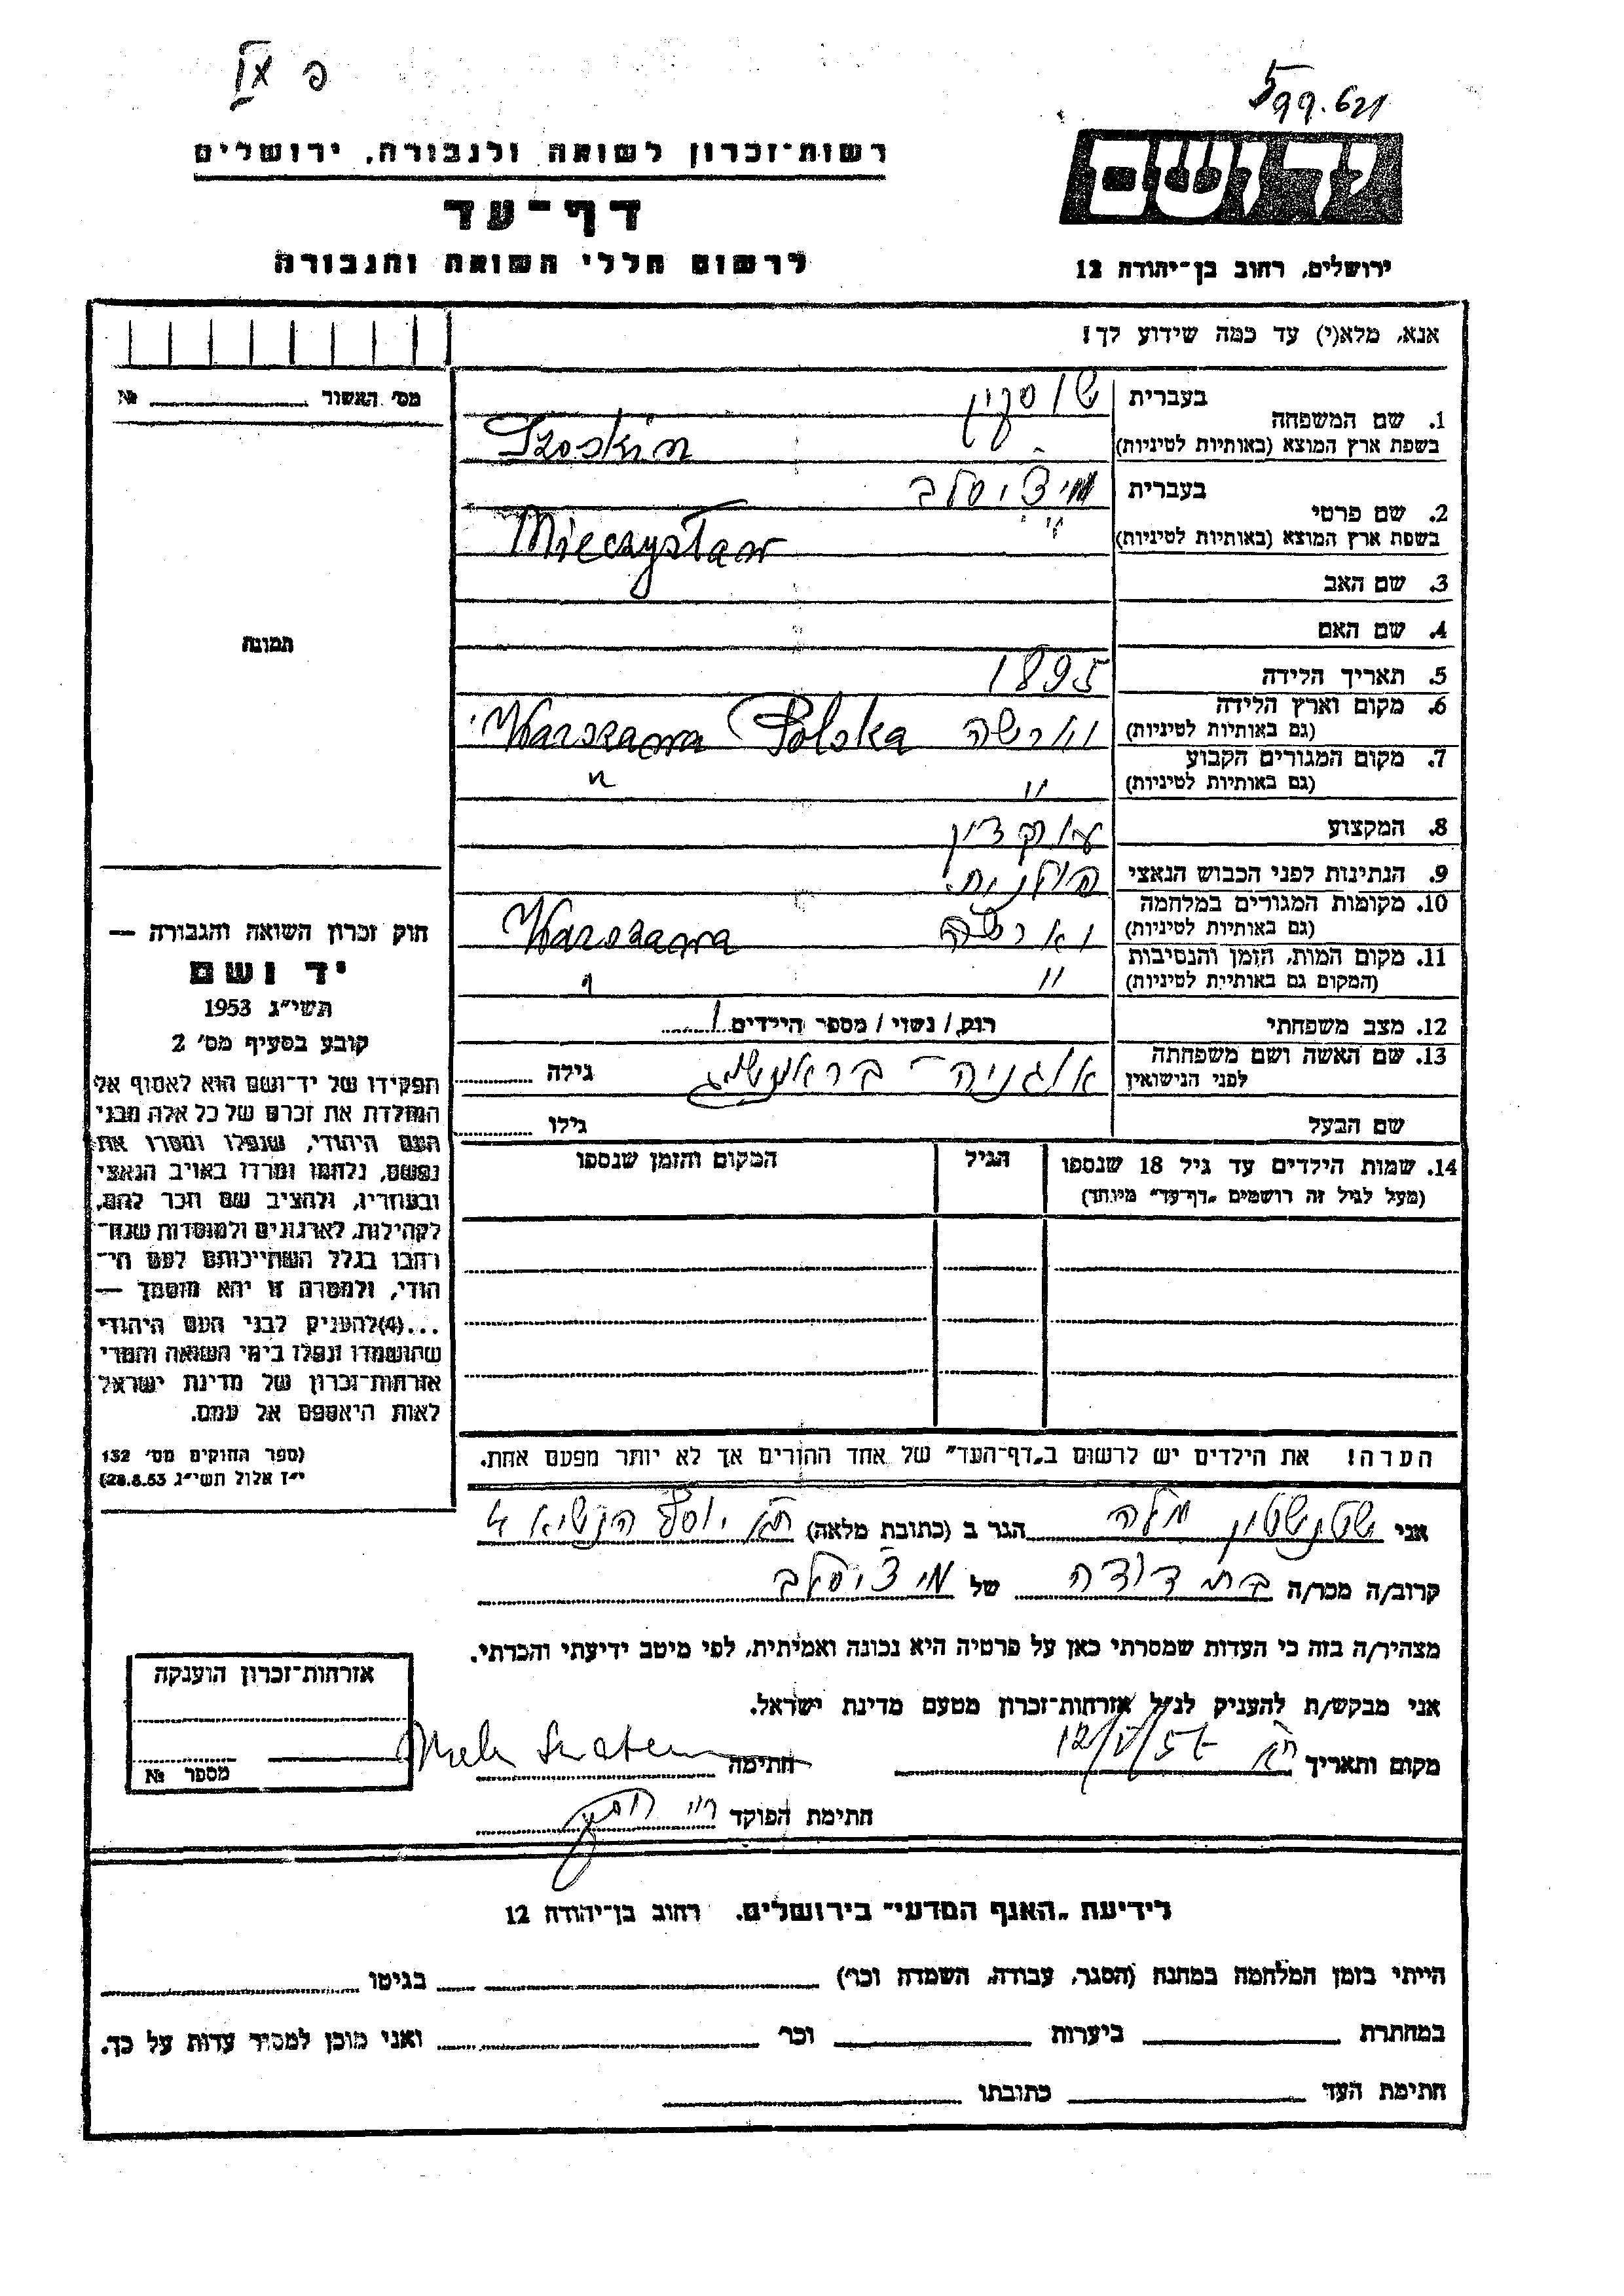 פ
599.621
רשות־זכרון לשואה ולגבורה, ירושלים
יד ושם
דף־עד
לרשום חללי השואה והגבורה
ירושלים, רחוב בן־יהודה 12
אנא, מלא(י) עד כמה שידוע לך!
מס' האשור № 
1. שם המשפחה בעברית שוסקין
בשפת ארץ המוצא (באותיות לטיניות) Szoskin
2. שם פרטי בעברית מיצ'יסלב
בשפת ארץ המוצא (באותיות לטיניות) Mieczysław
3. שם האב
4. שם האם
תמונה
5. תאריך הלידה 1895
6. מקום וארץ הלידה (גם באותיות לטיניות) וארשה Warszawa Polska
7. מקום המגורים הקבוע (גם באותיות לטיניות) " "
8. המקצוע עורך דין
9. הנתינות לפני הכבוש הנאצי פולנית
10. מקומות המגורים במלחמה (גם באותיות לטיניות) וארשה Warszawa
11. מקום המות, הזמן והנסיבות (המקום גם באותיות לטיניות) " "
12. מצב משפחתי רווק / נשוי / מספר הילדים 1
13. שם האשה ושם משפחתה לפני הנישואין אוגניה - גילה
שם הבעל גילו
14. שמות הילדים עד גיל 18 שנספו הגיל המקום והזמן שנספו
(מעל לגיל זה רושמים „דף־עד" מיוחד)
חוק זכרון השואה והגבורה —
יד ושם
תשי"ג 1953
קובע בסעיף מס' 2
תפקידו של יד־ושם הוא לאסוף אל
המולדת את זכרם של כל אלה מבני
העם היהודי, שנפלו ומסרו את
נפשם, נלחמו ומרדו באויב הנאצי
ובעוזריו, ולהציב שם וזכר להם,
לקהילות, לארגונים ולמוסדות שנח־
רבו בגלל השתייכותם לעם הי־
הודי, ולמטרה זו יהא מוסמך —
...(4)להעניק לבני העם היהודי
שהושמדו ונפלו בימי השואה והמרי
אזרחות־זכרון של מדינת ישראל
לאות היאספם אל עמם.
(ספר החוקים מס' 132
י"ז אלול תשי"ג 28.8.53)
הערה! את הילדים יש לרשום ב„דף־העד" של אחד ההורים אך לא יותר מפעם אחת.
אני מלה הגר ב (כתובת מלאה) ת"א יוסף הנשיא 4
קרוב/ה מכר/ה בת דודה של מיצ'יסלב
מצהיר/ה בזה כי העדות שמסרתי כאן על פרטיה היא נכונה ואמיתית, לפי מיטב ידיעתי והכרתי.
אני מבקש/ת להעניק לנ"ל אזרחות־זכרון מטעם מדינת ישראל.
מקום ותאריך ת"א 12/V/56 חתימה
חתימת הפוקד
אזרחות־זכרון הוענקה
מספר №
לידיעת „האגף המדעי" בירושלים, רחוב בן־יהודה 12
הייתי בזמן המלחמה במחנה (הסגר, עבודה, השמדה וכו') בגיטו
במחתרת ביערות וכו' ואני מוכן למסור עדות על כך.
חתימת העד כתובתו